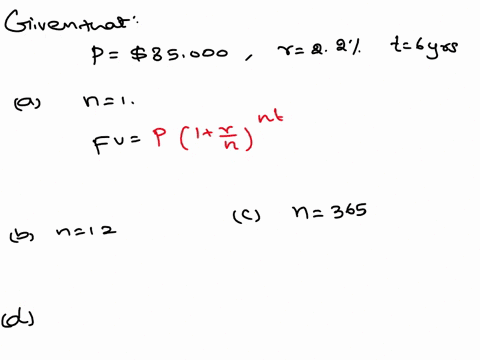 Given that:
P = $85.000 , r = 2.2% t = 6 yrs
(a) n = 1.
FV = P (1 + r/n)^nt
(b) n = 12
(c) n = 365
(d)